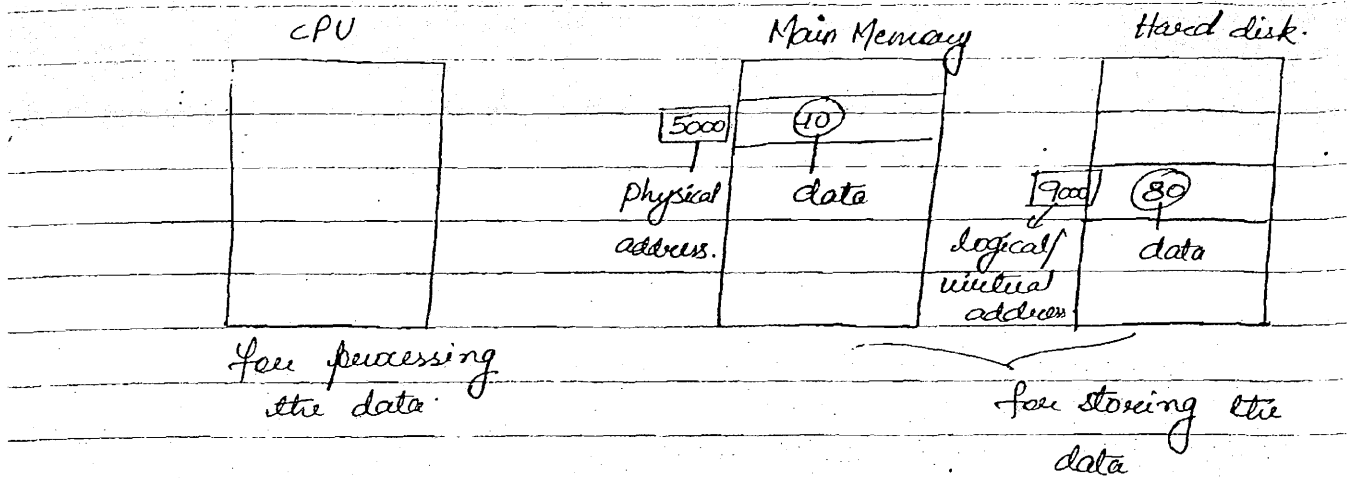 CPU
Main Memory
Hard disk.
5000
10
physical
address.
data
9000
80
logical/
virtual
address
data
for processing
the data.
for storing the
data